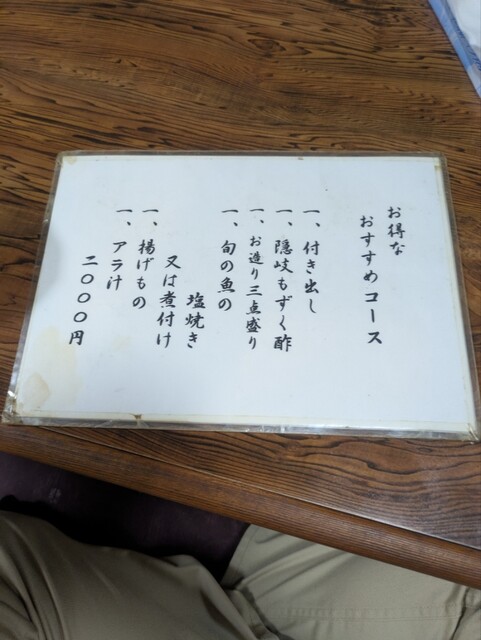 お得な
おすすめコース
一、付き出し
一、隠岐もずく酢
一、お造り三点盛り
一、旬の魚の
塩焼き
又は煮付け
一、揚げもの
一、アラ汁
二〇〇〇円